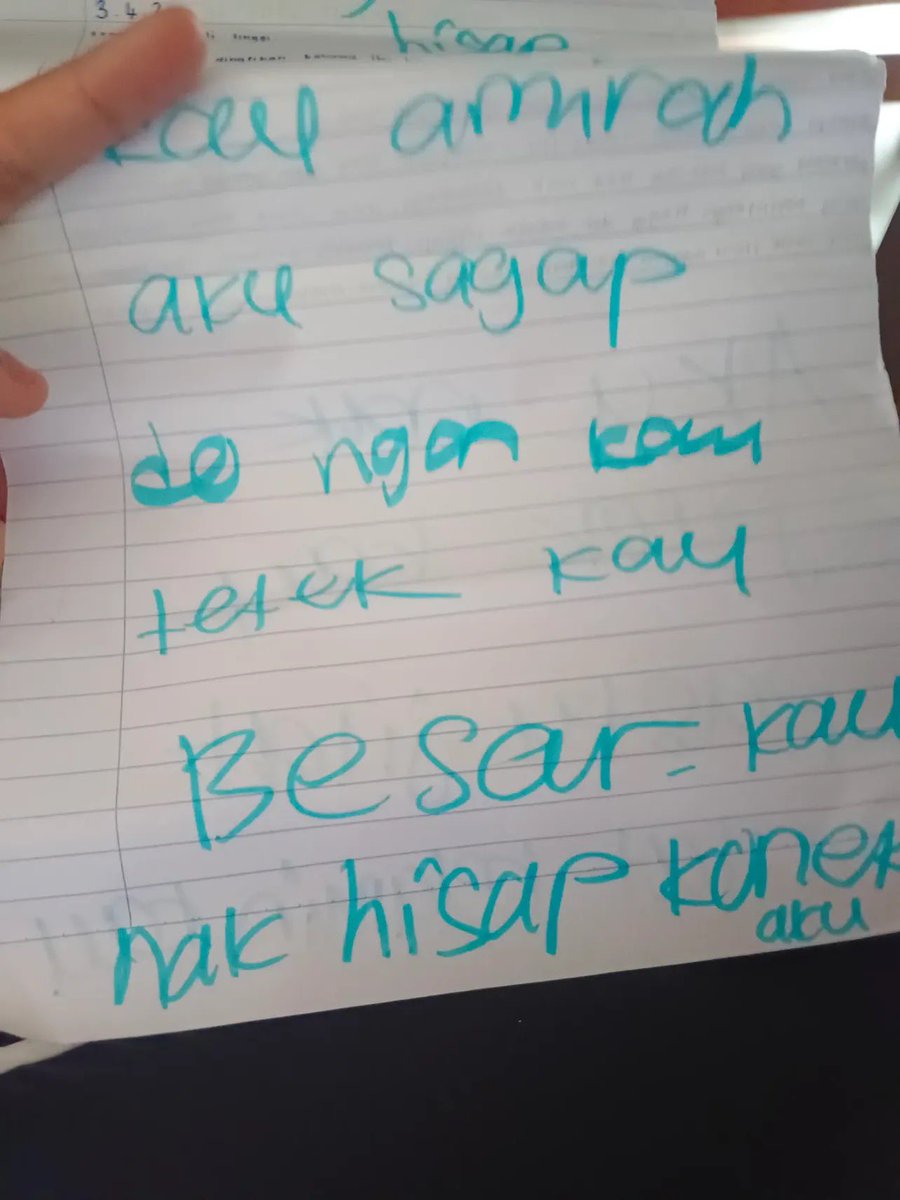 3.4.
hisap
kau amirah
aku sagap
de ngan kau
tetek kau
Besar - kau
nak hisap konek
aku